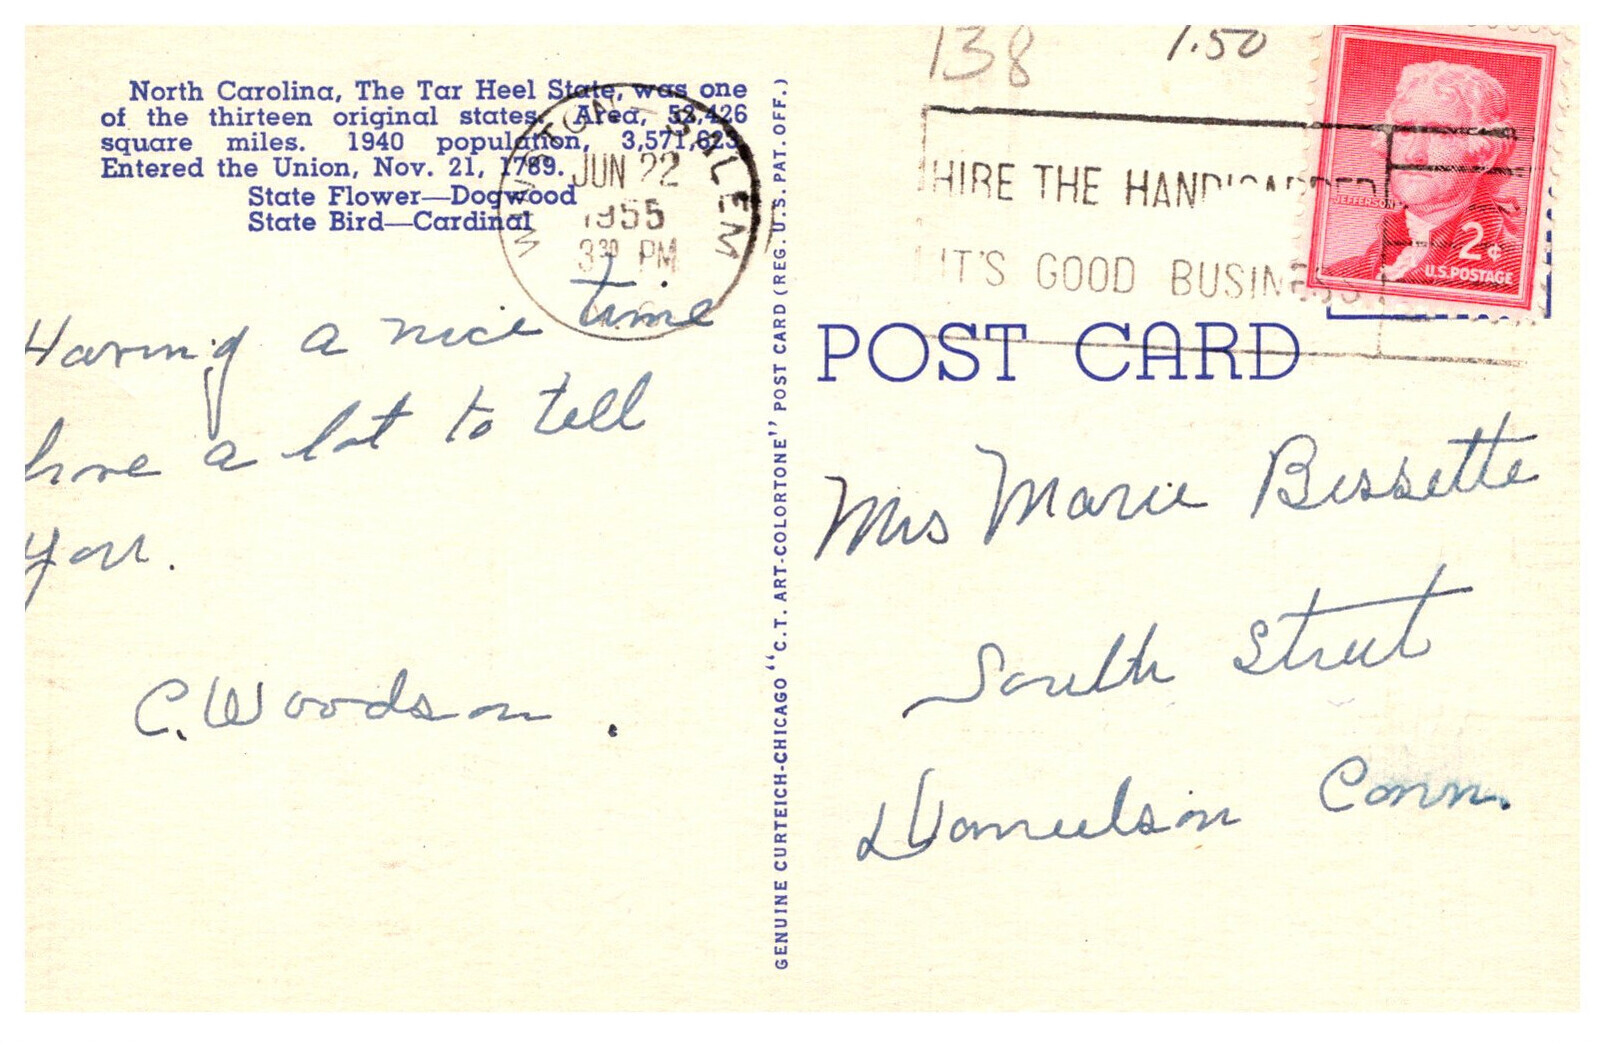 138
1.50
North Carolina, The Tar Heel State, was one
of the thirteen original states. Area, 52,426
square miles. 1940 population, 3,571,623.
Entered the Union, Nov. 21, 1789.
State Flower—Dogwood
State Bird—Cardinal
WINSTON-SALEM
JUN 22
1955
3 30 PM
N.C.
HIRE THE HANDICAPPED
IT'S GOOD BUSINESS
JEFFERSON
2¢
U.S. POSTAGE
Having a nice time
have a lot to tell
you.
C. Woodson.
GENUINE CURTEICH-CHICAGO "C.T. ART-COLORTONE" POST CARD (REG. U.S. PAT. OFF.)
POST CARD
Mrs Marie Bessette
South Street
Danielson Conn.